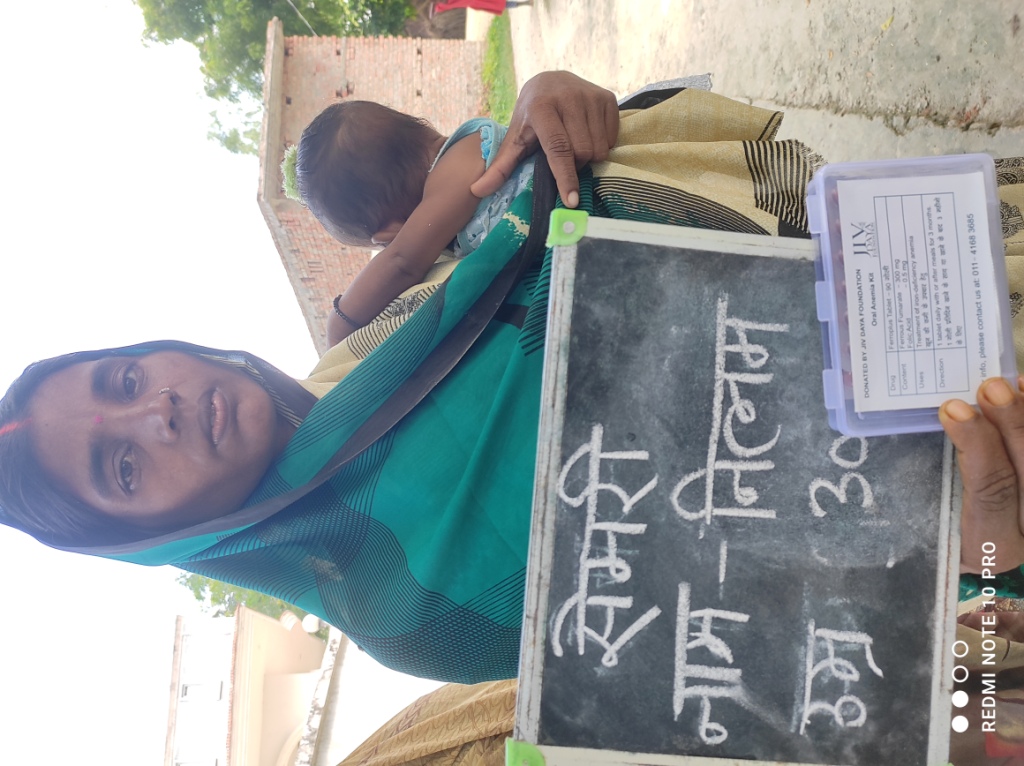 सेमरी
नाम - निलम
उम्र - 30
DONATED BY JIV DAYA FOUNDATION
JIV
DAYA
Oral Anemia Kit
Drug Ferroplus Tablet - 90 गोली
Content Ferrous Fumarate - 300 mg
Folic Acid - 0.5 mg
Uses Treatment of iron-deficiency anemia
खून की कमी के उपचार हेतु
Direction 1 tablet daily with or after meals for 3 months
1 गोली प्रतिदिन खाने के साथ या खाने के बाद 3 महीने के लिए
info, please contact us at: 011 - 4168 3685
REDMI NOTE 10 PRO